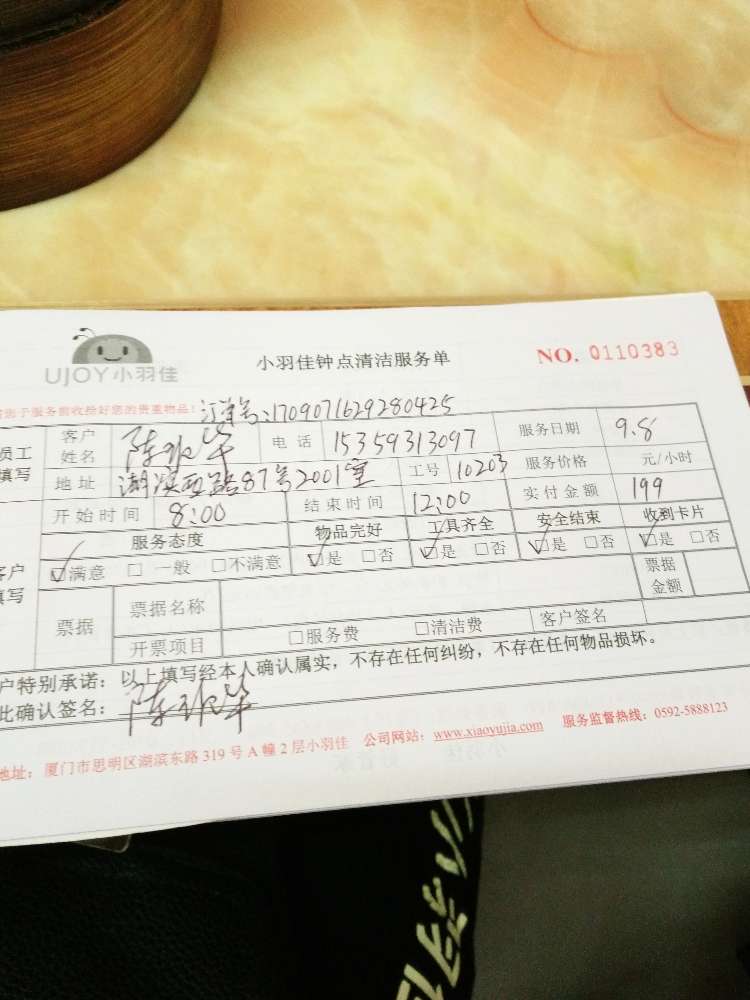 UJOY小羽佳
小羽佳钟点清洁服务单
NO. 0110383
请别于服务前收给好您的贵重物品! 订单号:1709071629280425
员工填写 客户姓名 陈 电话 15359313097 服务日期 9.8
地址 湖滨西路87号2001室 工号 10203 服务价格 元/小时
开始时间 8:00 结束时间 12:00 实付金额 199
服务态度 物品完好 工具齐全 安全结束 收到卡片
客户填写 ☑满意 □一般 □不满意 ☑是 □否 ☑是 □否 ☑是 □否 ☑是 □否
票据 票据名称 票据金额
开票项目 □服务费 □清洁费 客户签名
户特别承诺:以上填写经本人确认属实,不存在任何纠纷,不存在任何物品损坏。
此确认签名: 陈
地址:厦门市思明区湖滨东路319号A幢2层小羽佳 公司网站:www.xiaoyujia.com 服务监督热线:0592-5888123